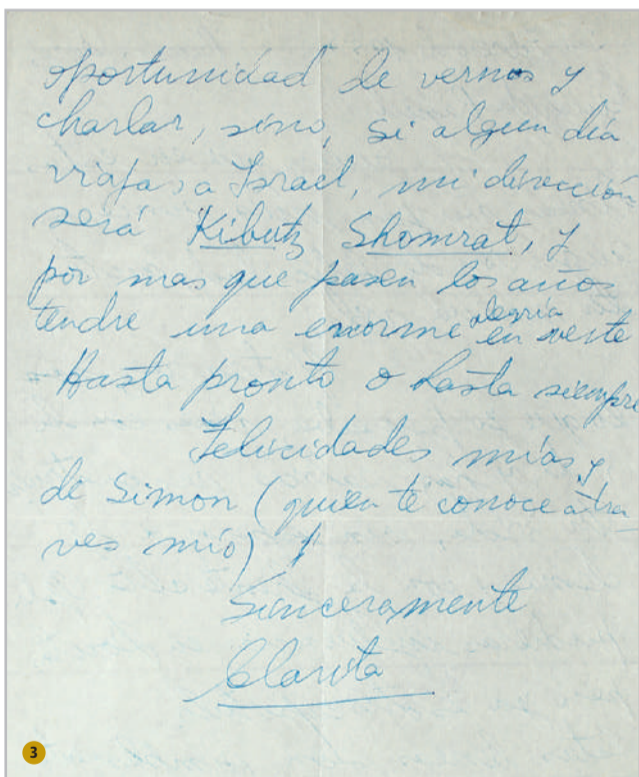 oportunidad de vernos y
charlar, sino, si algun dia
viajas a Israel, mi dirección
será Kibutz Shomrat, y
por mas que pasen los años
tendre una enorme alegría en verte
Hasta pronto o hasta siempre
Felicidades mías y
de Simon (quien te conoce a tra-
ves mío)
Sinceramente
Clarita
3